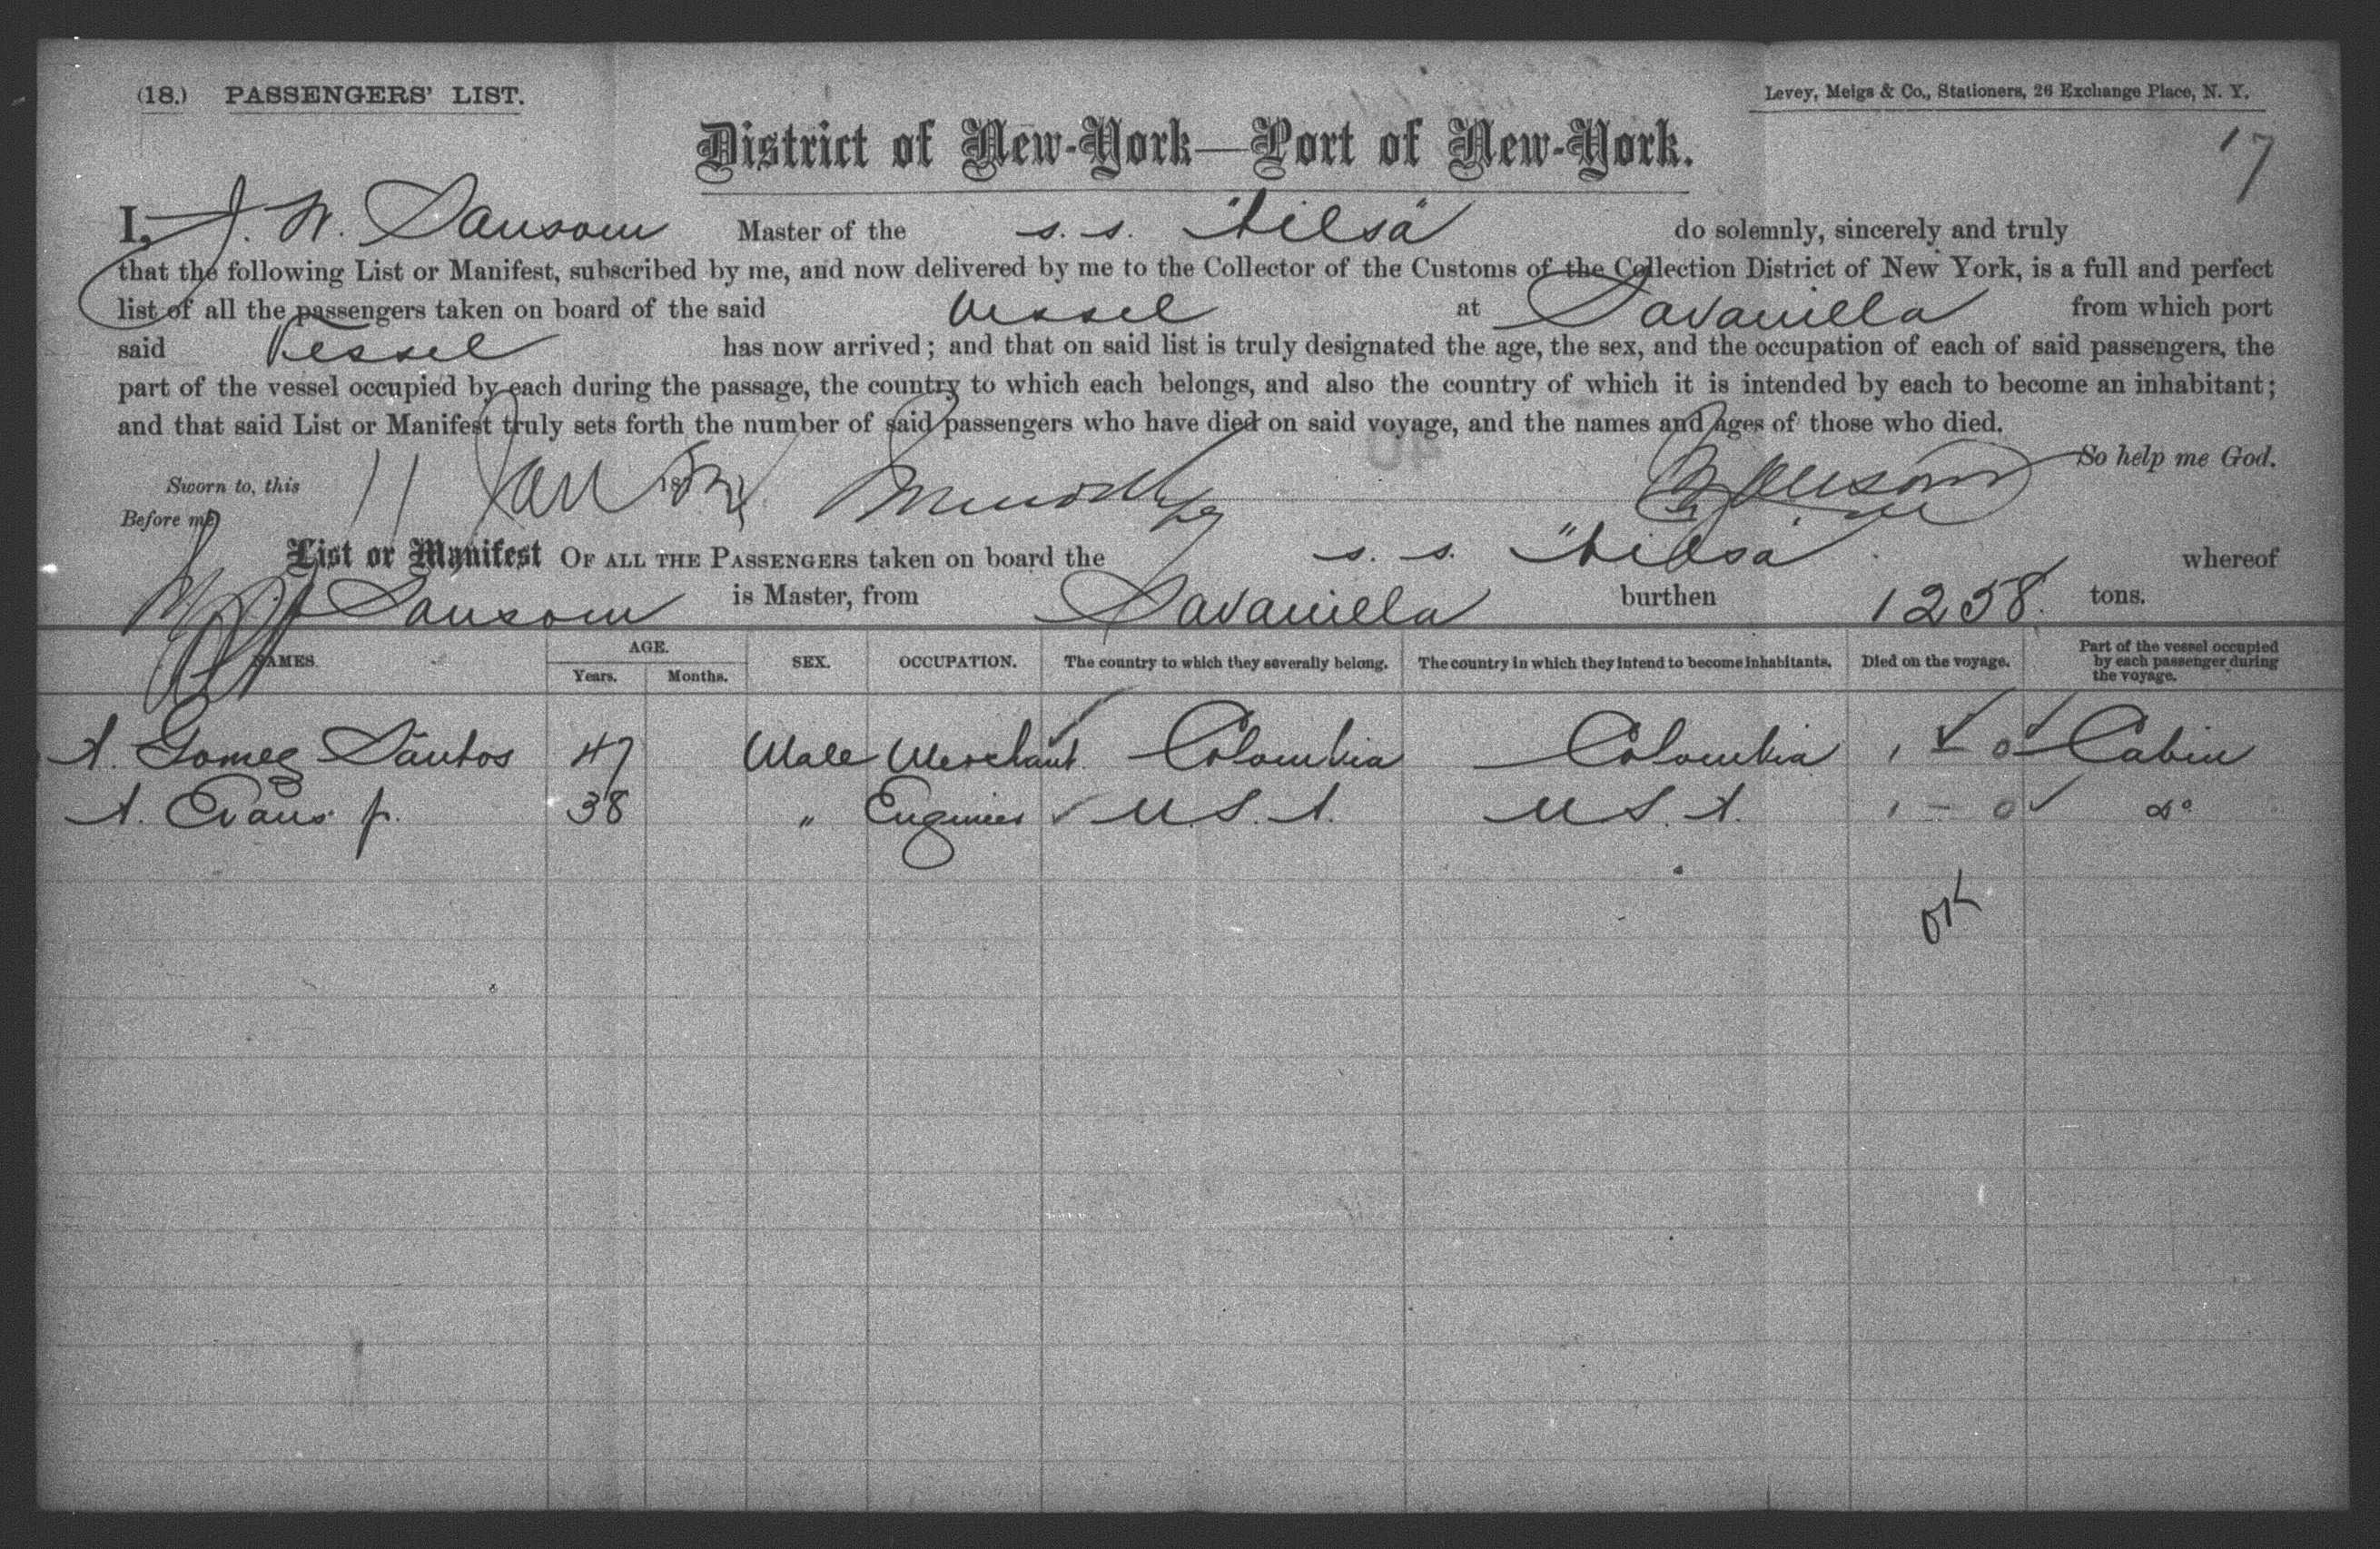 (18.) PASSENGERS' LIST.
Levey, Meigs & Co., Stationers, 26 Exchange Place, N. Y.
District of New-York—Port of New-York.
17
I, J. W. Sansom Master of the s. s. "Ailsa" do solemnly, sincerely and truly
that the following List or Manifest, subscribed by me, and now delivered by me to the Collector of the Customs of the Collection District of New York, is a full and perfect
list of all the passengers taken on board of the said vessel at Savanilla from which port
said Vessel has now arrived; and that on said list is truly designated the age, the sex, and the occupation of each of said passengers, the
part of the vessel occupied by each during the passage, the country to which each belongs, and also the country of which it is intended by each to become an inhabitant;
and that said List or Manifest truly sets forth the number of said passengers who have died on said voyage, and the names and ages of those who died.
So help me God.
Sworn to, this 11 Jan 18
Before me
List or Manifest OF ALL THE PASSENGERS taken on board the s. s. "Ailsa" whereof
Sansom is Master, from Savanilla burthen 1258 tons.
NAMES. AGE. Years. Months. SEX. OCCUPATION. The country to which they severally belong. The country in which they intend to become inhabitants. Died on the voyage. Part of the vessel occupied by each passenger during the voyage.
A. Gomez Santos 47 Male Merchant Colombia Colombia Cabin
A. Evans jr. 38 " Engineer U. S. A. U. S. A. do
OK